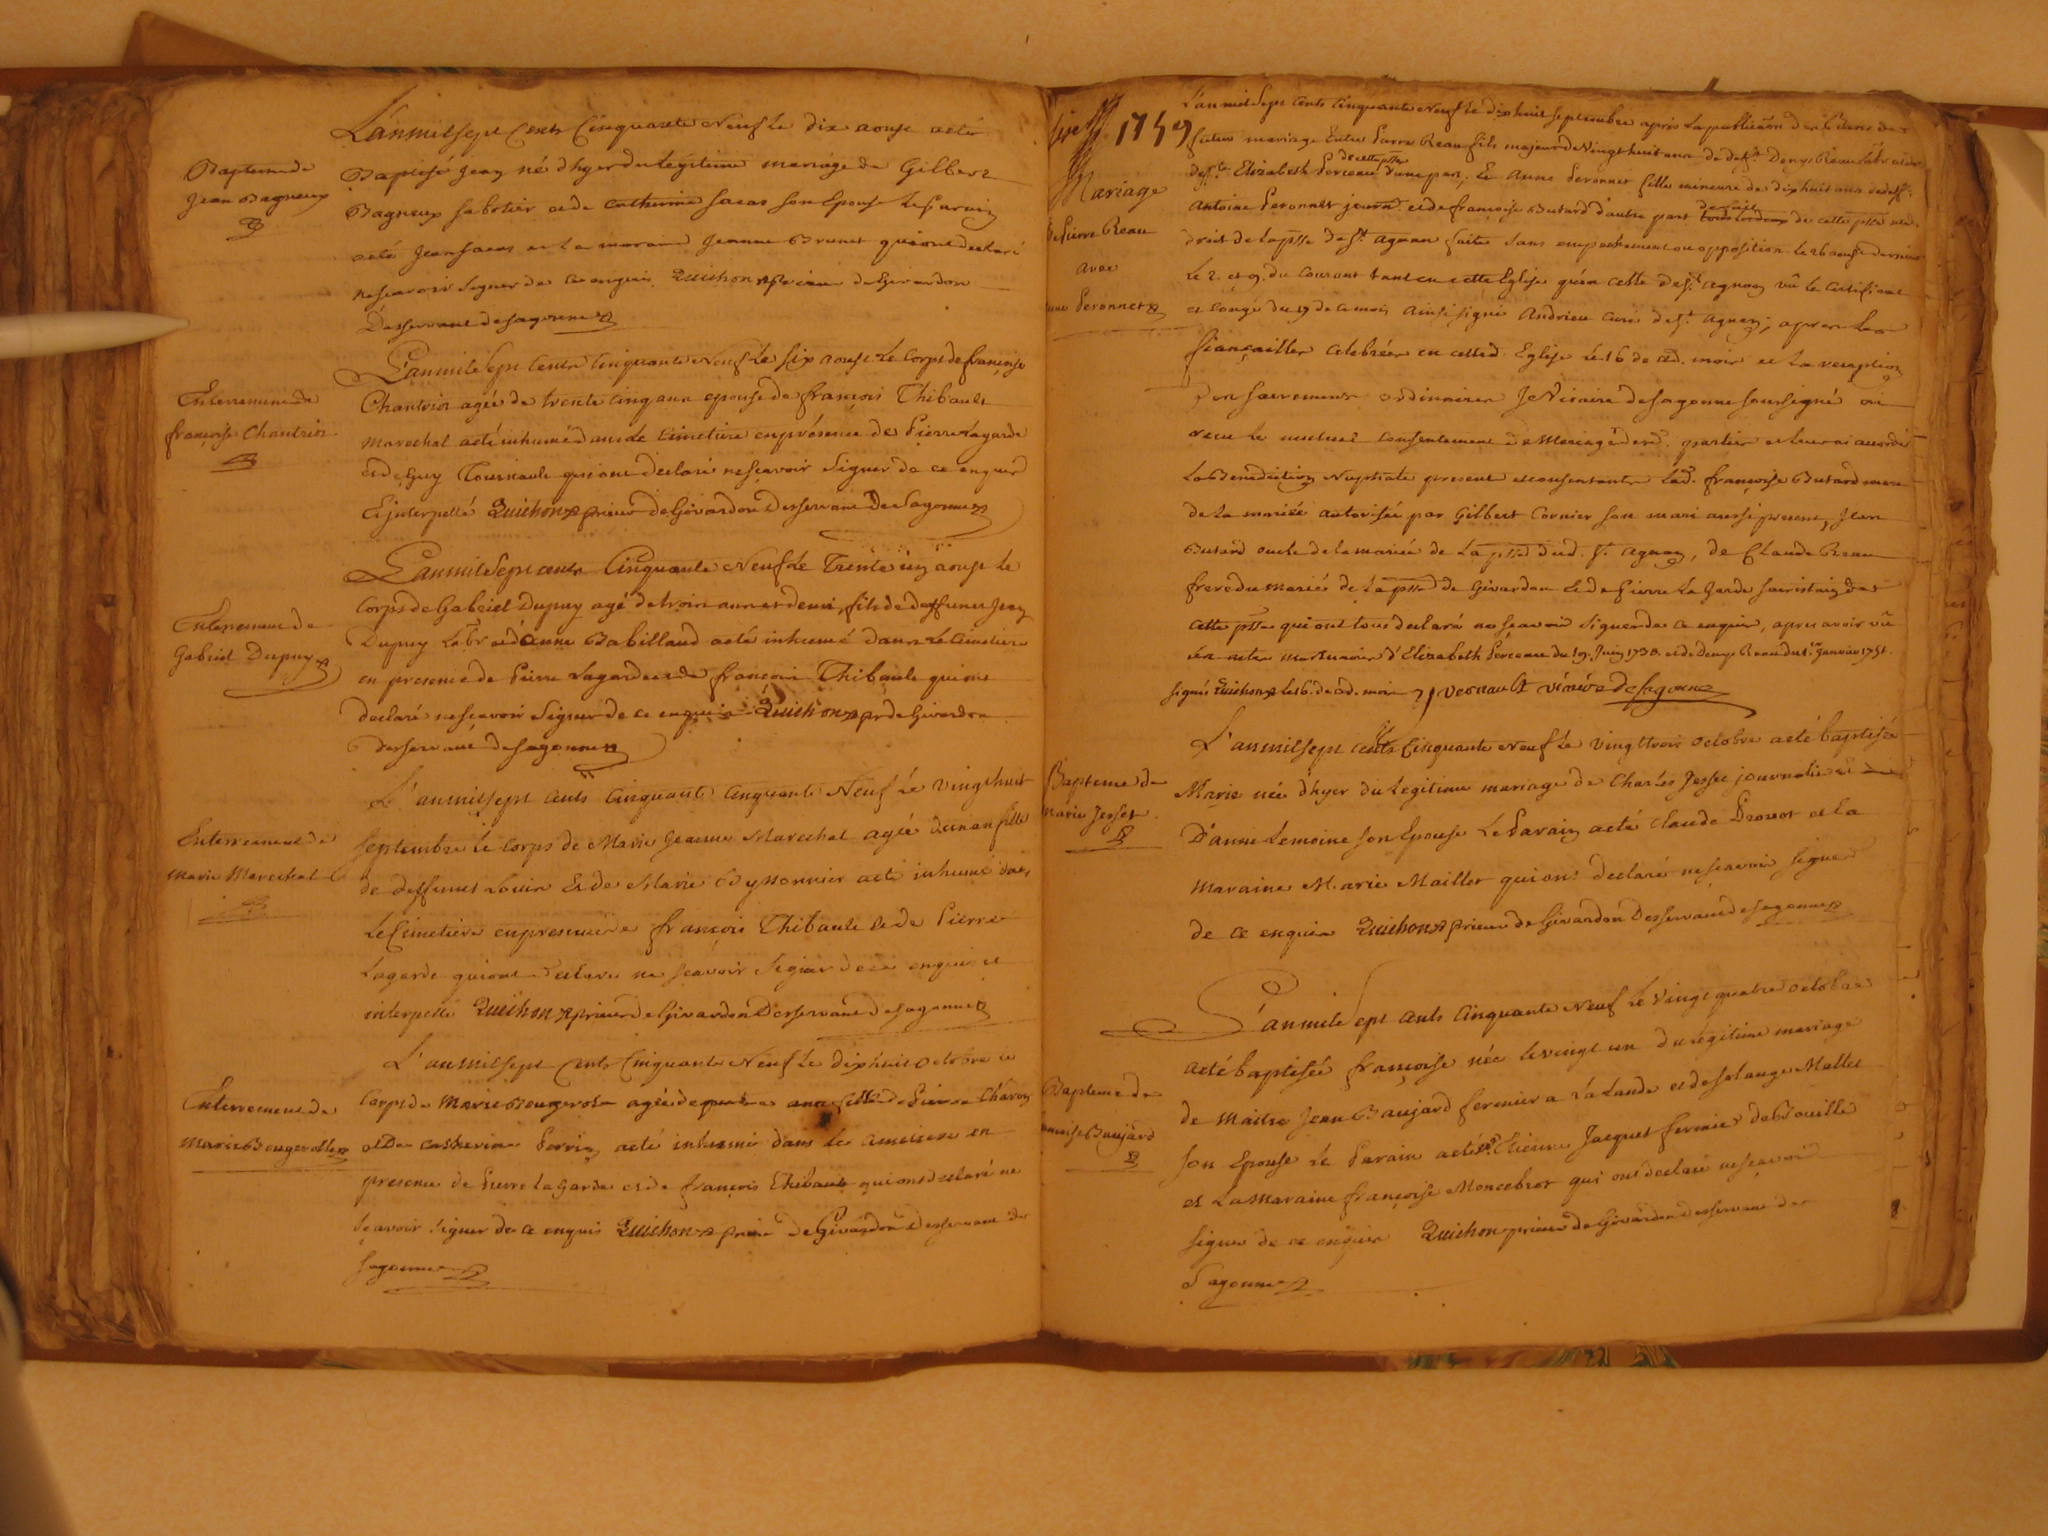 Baptemede
Jean Bagneux
L'anmilsept Cents Cinquante Neuf Le dix aoust aété
Baptisé Jean né d'hyer du Legitime mariage de Gilbert
Bagneux sabotier et de Catherine son Epouse Le Parain
aeté Jean et La maraine Jeanne Brunet qui ont declaré
ne scavoir signer de ce enquis Quichon prieur de Givardon
Desservant de Sagonne
Enterrement de
françoise Chautrier
L'anmil Sept Cents Cinquante Neuf Le six aoust Le Corps de françoise
agée de trente cinq ans epouse de françois Thibault
marechal aeté inhumé dans Le Cimetiere en présence de Pierre Lagarde
et de Guy Tournault qui ont declaré ne scavoir signer de ce enquis
Et interpellé Quichon prieur de Givardon Desservant De Sagonne
Enterrement de
Gabriel Dupuy
L'anmil Sept cents Cinquante Neuf Le Trente un aoust Le
Corps de Gabriel Dupuy agé de trois ans et demi, fils de deffunct Jean
Dupuy Labr et d'anne Babillaud aeté inhumé dans Le Cimetiere
en presence de Pierre Lagarde et de françois Thibault qui ont
declaré ne scavoir signer de ce enquis Quichon pr de Givardon
desservant de Sagonne
Enterrement de
Marie Marechal
L'anmilsept cents cinquante cinquante Neuf Le vingt huit
septembre le Corps de Marie Jeanne Marechal agée d'un an fille
de deffunct Louis Et de Marie aeté inhumé dans
Le Cimetiere en presence de françois Thibault et de Pierre
Lagarde qui ont declaré ne scavoir signer de ce enquis et
interpellé Quichon prieur de Givardon Desservant de Sagonne
Enterrement de
Marie Bougerolle
L'anmilsept Cents Cinquante Neuf Le dixhuit octobre le
Corps de Marie agée de quatre ans fille de Pierre
et De Catherine Perrin aeté inhumé dans le cimetiere en
presence de Pierre La Garde et de françois Thibault qui ont declaré ne
scavoir signer de ce enquis Quichon prieur de Givardon desservant de
Sagonne
1759
Mariage
De Pierre Reau
avec
Anne Peronnet
L'an mil Sept cents cinquante Neuf le dixhuit septembre après la publication des bans de
futur mariage Entre Pierre Reau fils majeur de Vingt huit ans de deft. Denys Reau labr et de
deft. Elizabeth Perceau de cette psse d'une part, Et Anne Peronnet fille mineure de dixhuit ans de deft.
Antoine Peronnet journr. et de françoise Butard d'autre part de cette psse et de
droit de la psse de St. Agnan faite sans empechement ou opposition le 26 aoust dernier
Le 2. et 9. du Courant tant en cette Eglise qu'en celle de St. Agnan vû le Certificat
et congé du 17 de ce mois ainsi signé Andrieu curé de St. Agnan, apres les
fiançailles celebrées en cetted. Eglise le 16 de ced. mois et la reception
des sacrements ordinaires Je Vicaire de Sagonne soussigné ai
receu le mutuel consentement de Mariage desd. parties et leur ai accordé
La Benediction Nuptiale present et consentante lad. françoise Butard mere
de la mariée autorisée par Gilbert Cornier son mari aussi present, Jean
Butard oncle de la mariée de la psse dud. St. Agnan, de Claude Reau
frere du marié de la psse de Givardon et de Pierre La Garde sacristain de
cette psse qui ont tous declaré ne scavoir signer de ce enquis, apres avoir vû
les actes mortuaires d'Elizabeth Perceau du 19. Juin 1738. et de Denys Reau du 1er Janvier 1751.
signés Quichon le 16. de ced. mois Vernault vicaire de Sagonne
Bapteme de
Marie Jesset
L'anmilsept cents Cinquante Neuf Le vingt trois octobre aeté baptisée
Marie née d'hyer du Legitime mariage de Charles Jesset journalier et
D'anne Lemoine son Epouse Le Parain aeté Claude Prouot et la
Maraine Marie Maillet qui ont declaré ne scavoir signer
de ce enquis Quichon prieur de Givardon Desservant de Sagonne
Bapteme de
françoise Baujard
L'anmil Sept cents Cinquante Neuf Le Vingt quatre octobre
aeté baptisée françoise née le vingt un du legitime mariage
de Maitre Jean Baujard fermier a la Lande et de Solange Mallet
son Epouse Le Parain aeté Me. Etienne Jacquet fermier de
et La Maraine françoise Moncebrot qui ont declaré ne scavoir
signer de ce enquis Quichon prieur de Givardon desservant de
Sagonne